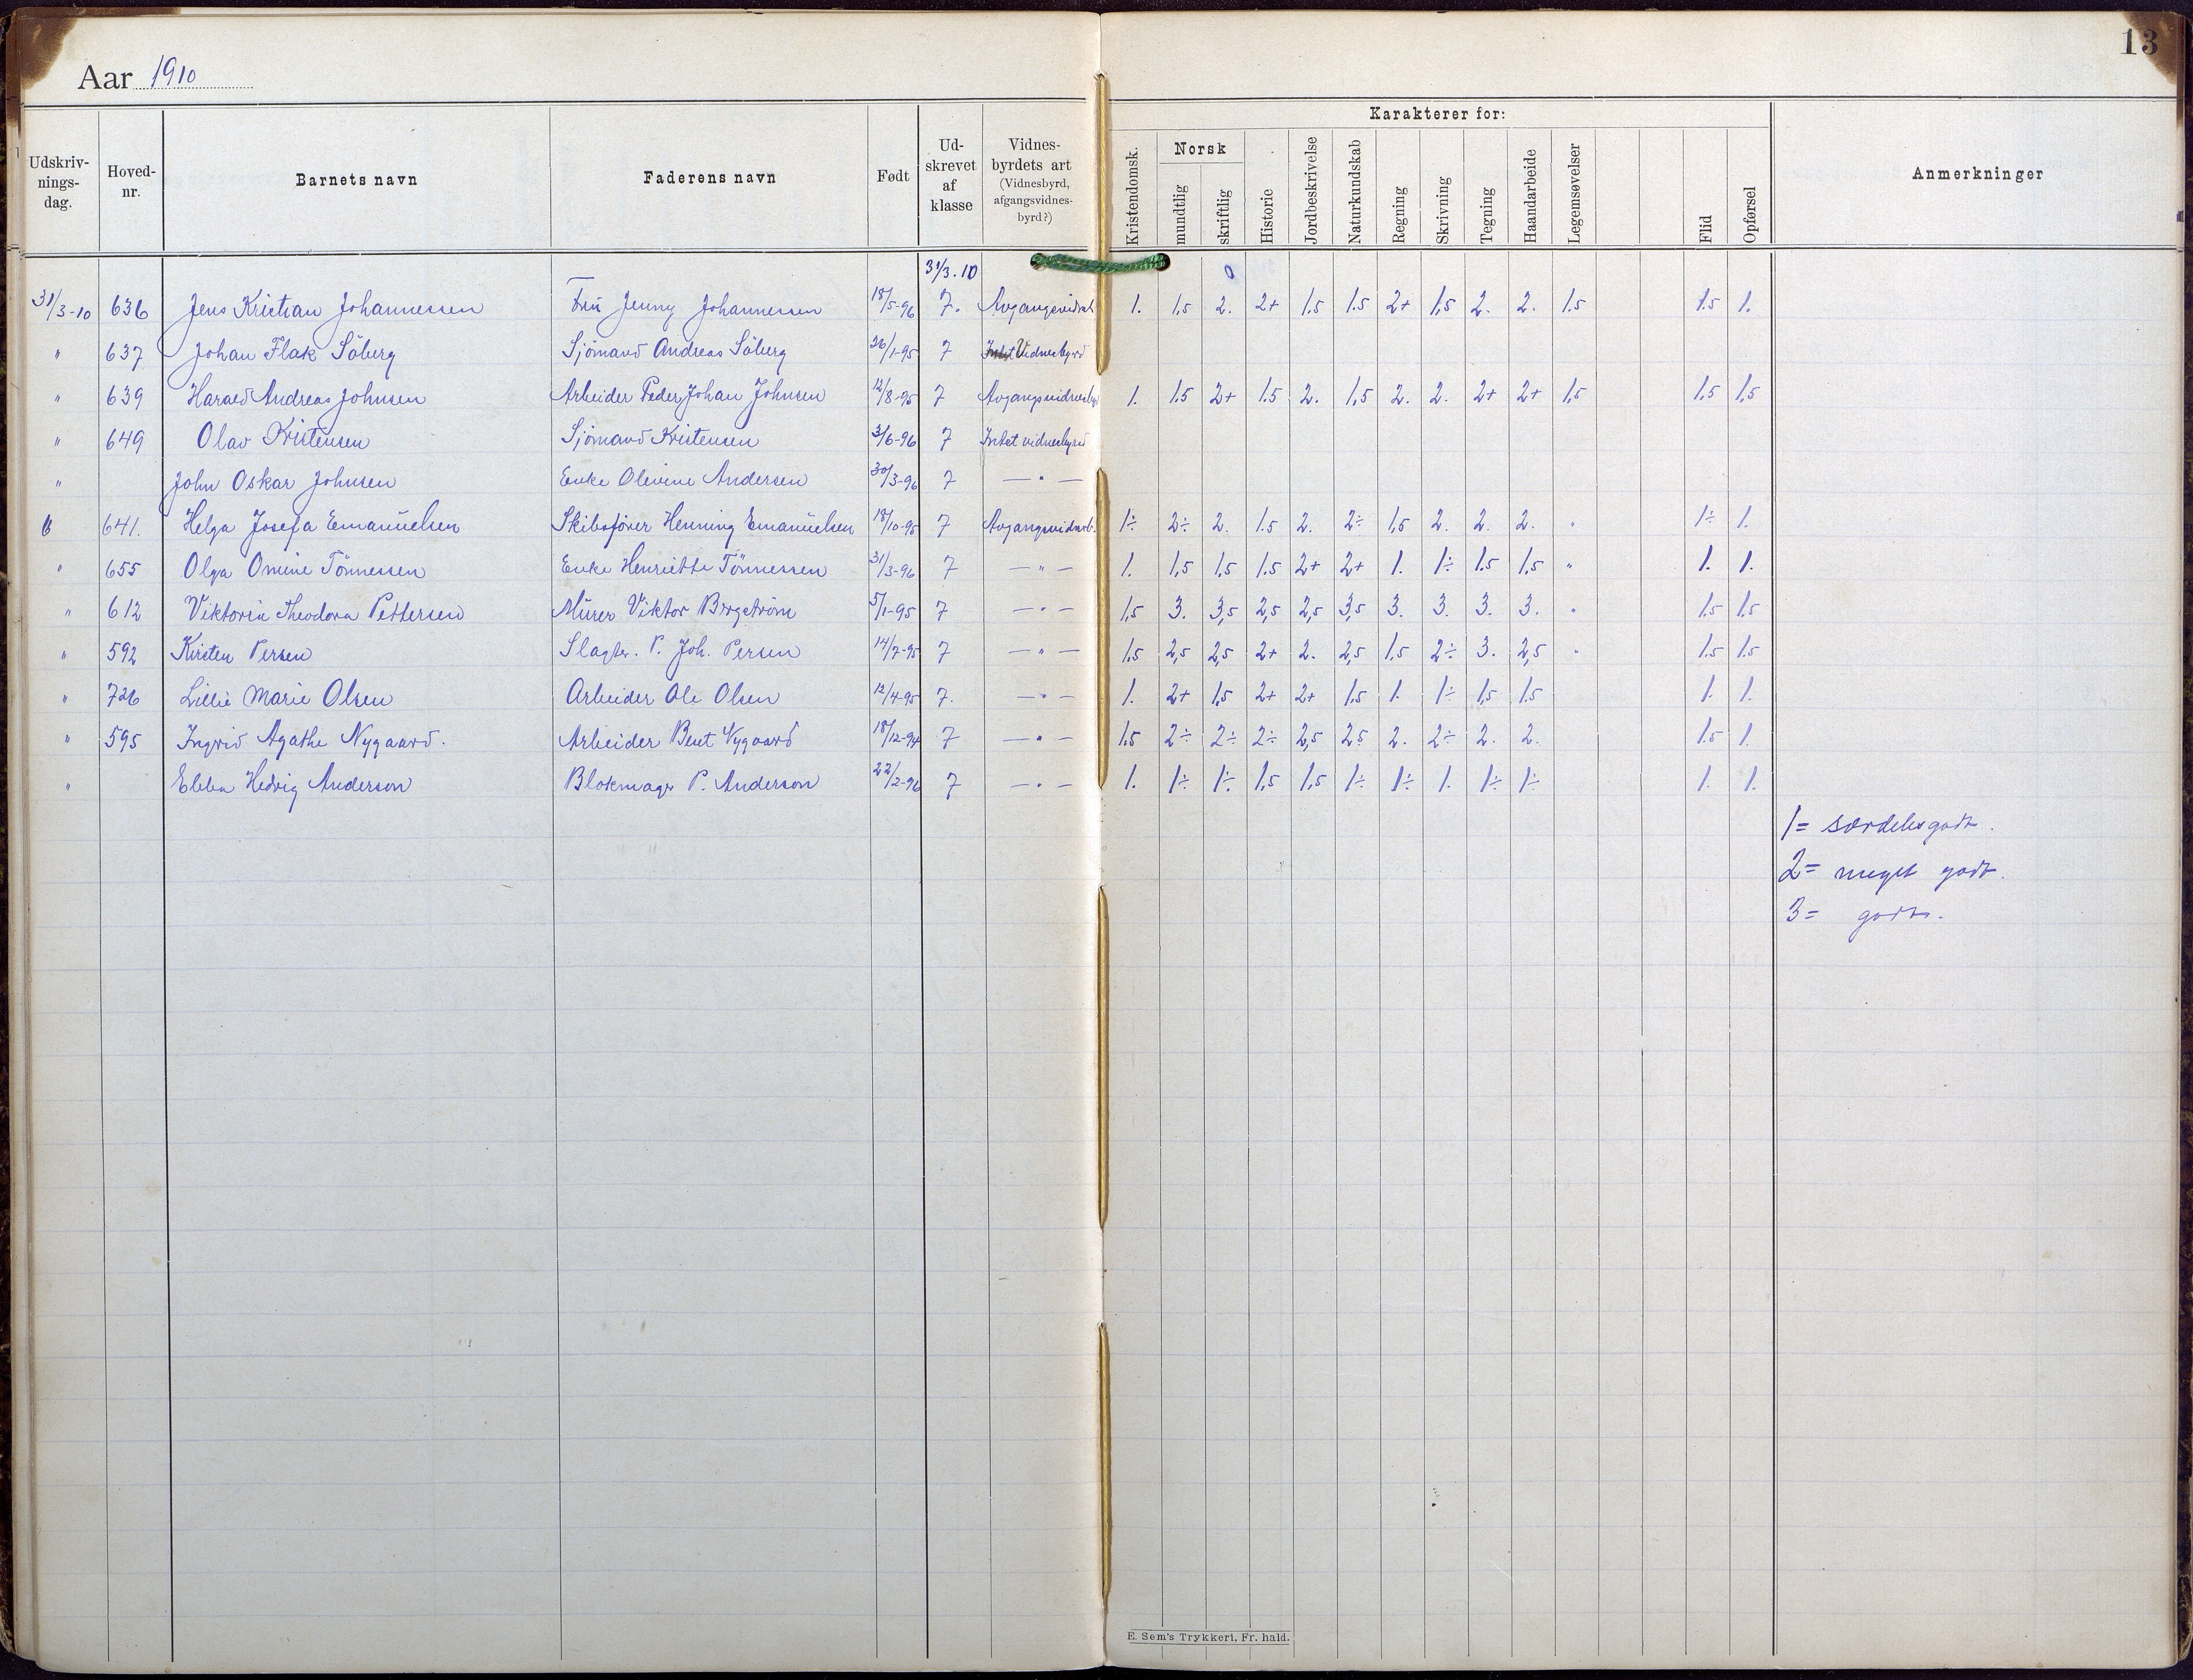 13
Aar 1910
Karakterer for:
Udskriv-nings-dag. Hoved-nr. Barnets navn Faderens navn Født Ud-skrevet af klasse Vidnes-byrdets art (Vidnesbyrd, afgangsvidnes-byrd?) Kristendomsk. Norsk mundtlig skriftlig Historie Jordbeskrivelse Naturkundskab Regning Skrivning Tegning Haandarbeide Legemsøvelser Flid Opførsel Anmerkninger
31/3.10 0
31/3-10 636 Jens Kristian Johannessen Fru Jenny Johannessen 18/5-96 7. Avgangsvidnesb 1. 1,5 2. 2+ 1,5 1.5 2+ 1,5 2. 2. 1.5 1.5 1.
" 637 Johan Flak Söberg Sjömand Andreas Söberg 26/1-95 7 Intet Vidnesbyrd
" 639 Harald Andreas Johnsen Arbeider Peder Johan Johnsen 12/8-95 7 Avgangsvidnesby 1. 1.5 2+ 1.5 2. 1,5 2. 2. 2+ 2+ 1,5 1,5 1,5
" 649 Olav Kristensen Sjömand Kristensen 3/6-96 7 Intet vidnesbyrd
" John Oskar Johnsen Enke Olevine Andersen 30/3-96 7 — " —
641. Helga Josefa Emanuelsen Skibsfører Henning Emanuelsen 18/10-95 7 Avgangsvidnesb. 1÷ 2÷ 2. 1.5 2. 2÷ 1,5 2. 2. 2. " 1÷ 1.
" 655 Olga Omine Tönnessen Enke Henriette Tönnessen 31/3-96 7 — " — 1. 1,5 1,5 1.5 2+ 2+ 1. 1÷ 1.5 1,5 " 1. 1.
" 612 Viktoria Theodora Pettersen Murer Viktor Bergström 5/1-95 7 — " — 1,5 3. 3,5 2,5 2,5 3,5 3. 3. 3. 3. " 1.5 1.5
" 592 Kirsten Persen Slagter. P. Joh. Persen 14/7-95 7 — " — 1.5 2,5 2,5 2+ 2. 2,5 1,5 2÷ 3. 2,5 " 1.5 1.5
" 726 Lillie Marie Olsen Arbeider Ole Olsen 12/4-95 7. — " — 1. 2+ 1,5 2+ 2+ 1,5 1. 1÷ 1,5 1.5 1. 1.
" 595 Ingrid Agathe Nygaard. Arbeider Bent Nygaard 18/12-94 7 — " — 1.5 2÷ 2÷ 2÷ 2,5 2.5 2. 2÷ 2. 2. 1.5 1.
" Ebba Hedvig Anderson Blokmager P. Anderson 22/2-96 7 — " — 1. 1÷ 1÷ 1,5 1,5 1÷ 1÷ 1. 1÷ 1÷ 1. 1.
1= særdelesgodt.
2= meget godt.
3= godt.
E. Sem's Trykkeri, Fr. hald.